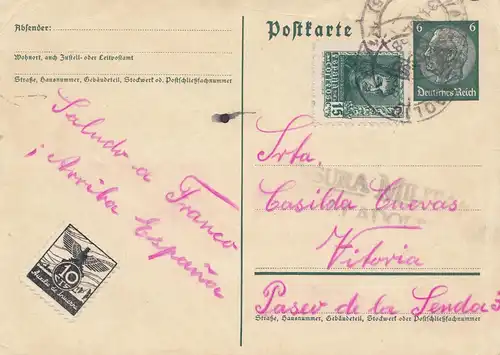 Absender:
Wohnort, auch Zustell- oder Leitpostamt
Straße, Hausnummer, Gebäudeteil, Stockwerk od. Postschließfachnummer
Saludo a Franco
¡Arriba España
10
Auxilio de Invierno
Postkarte
15
6 6
Deutsches Reich
Srta,
Casilda Cuevas
Vitoria
Paseo de la Senda 3
Straße, Hausnummer, Gebäudeteil, Stockwerk oder Postschließfachnummer